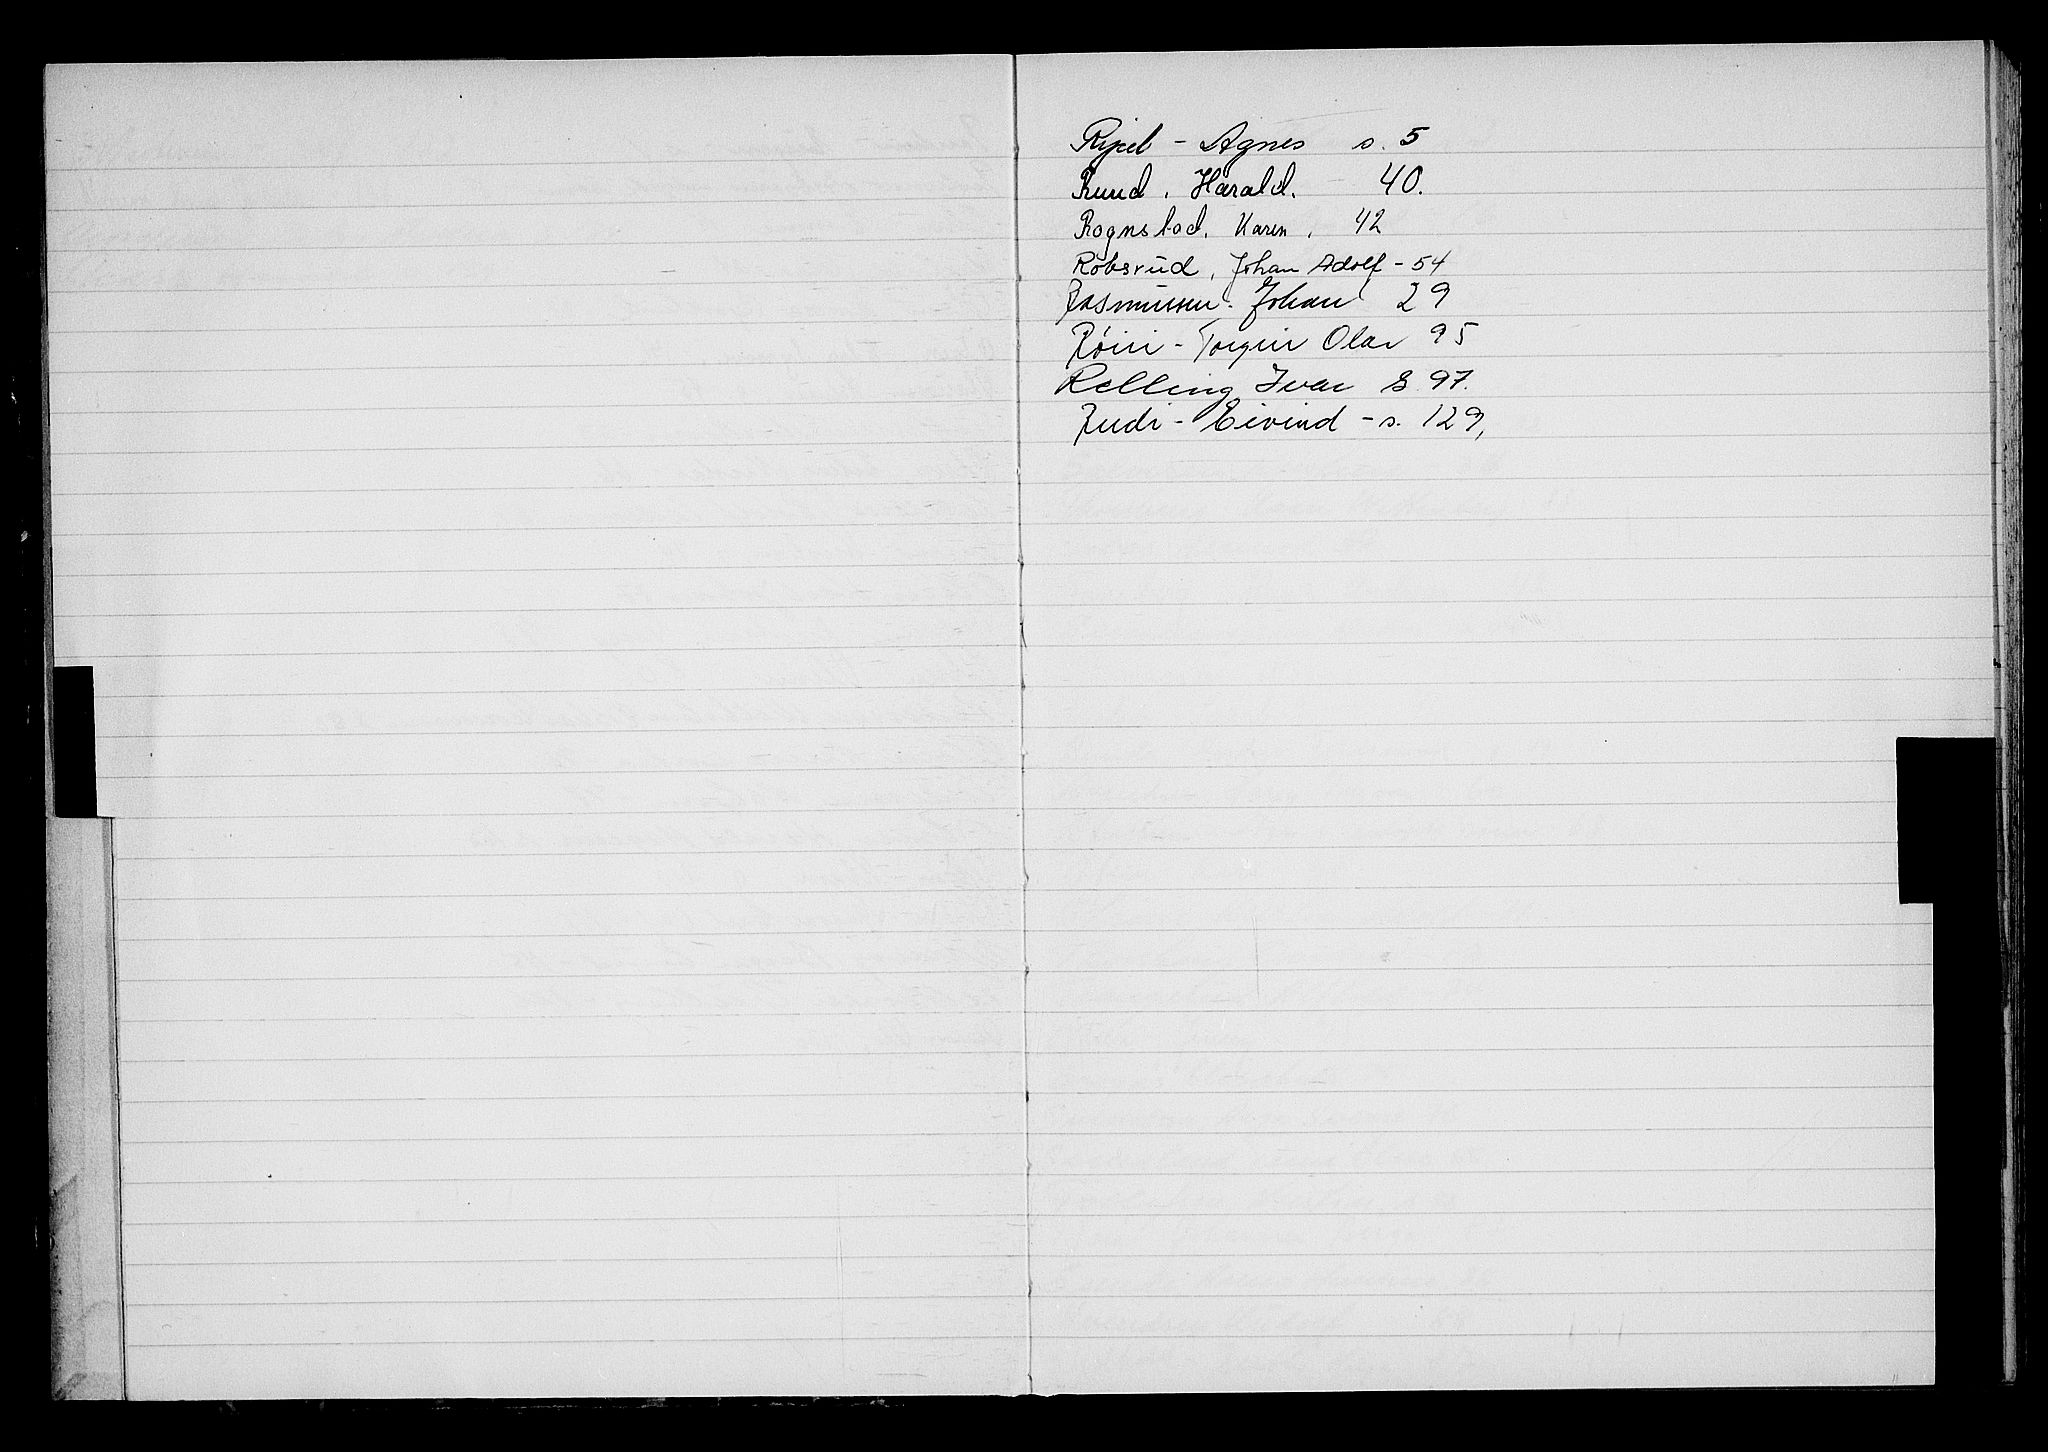 Rijel - Agnes s. 5
Ruud, Harald. 40.
Rognstad, Karen, 42
Robsrud, Johan Adolf - 54
Rasmussen. Johan 29
Røiri - Torgeir Olav 95
Relling Ivar S. 97.
Rudi - Eivind - s. 129,